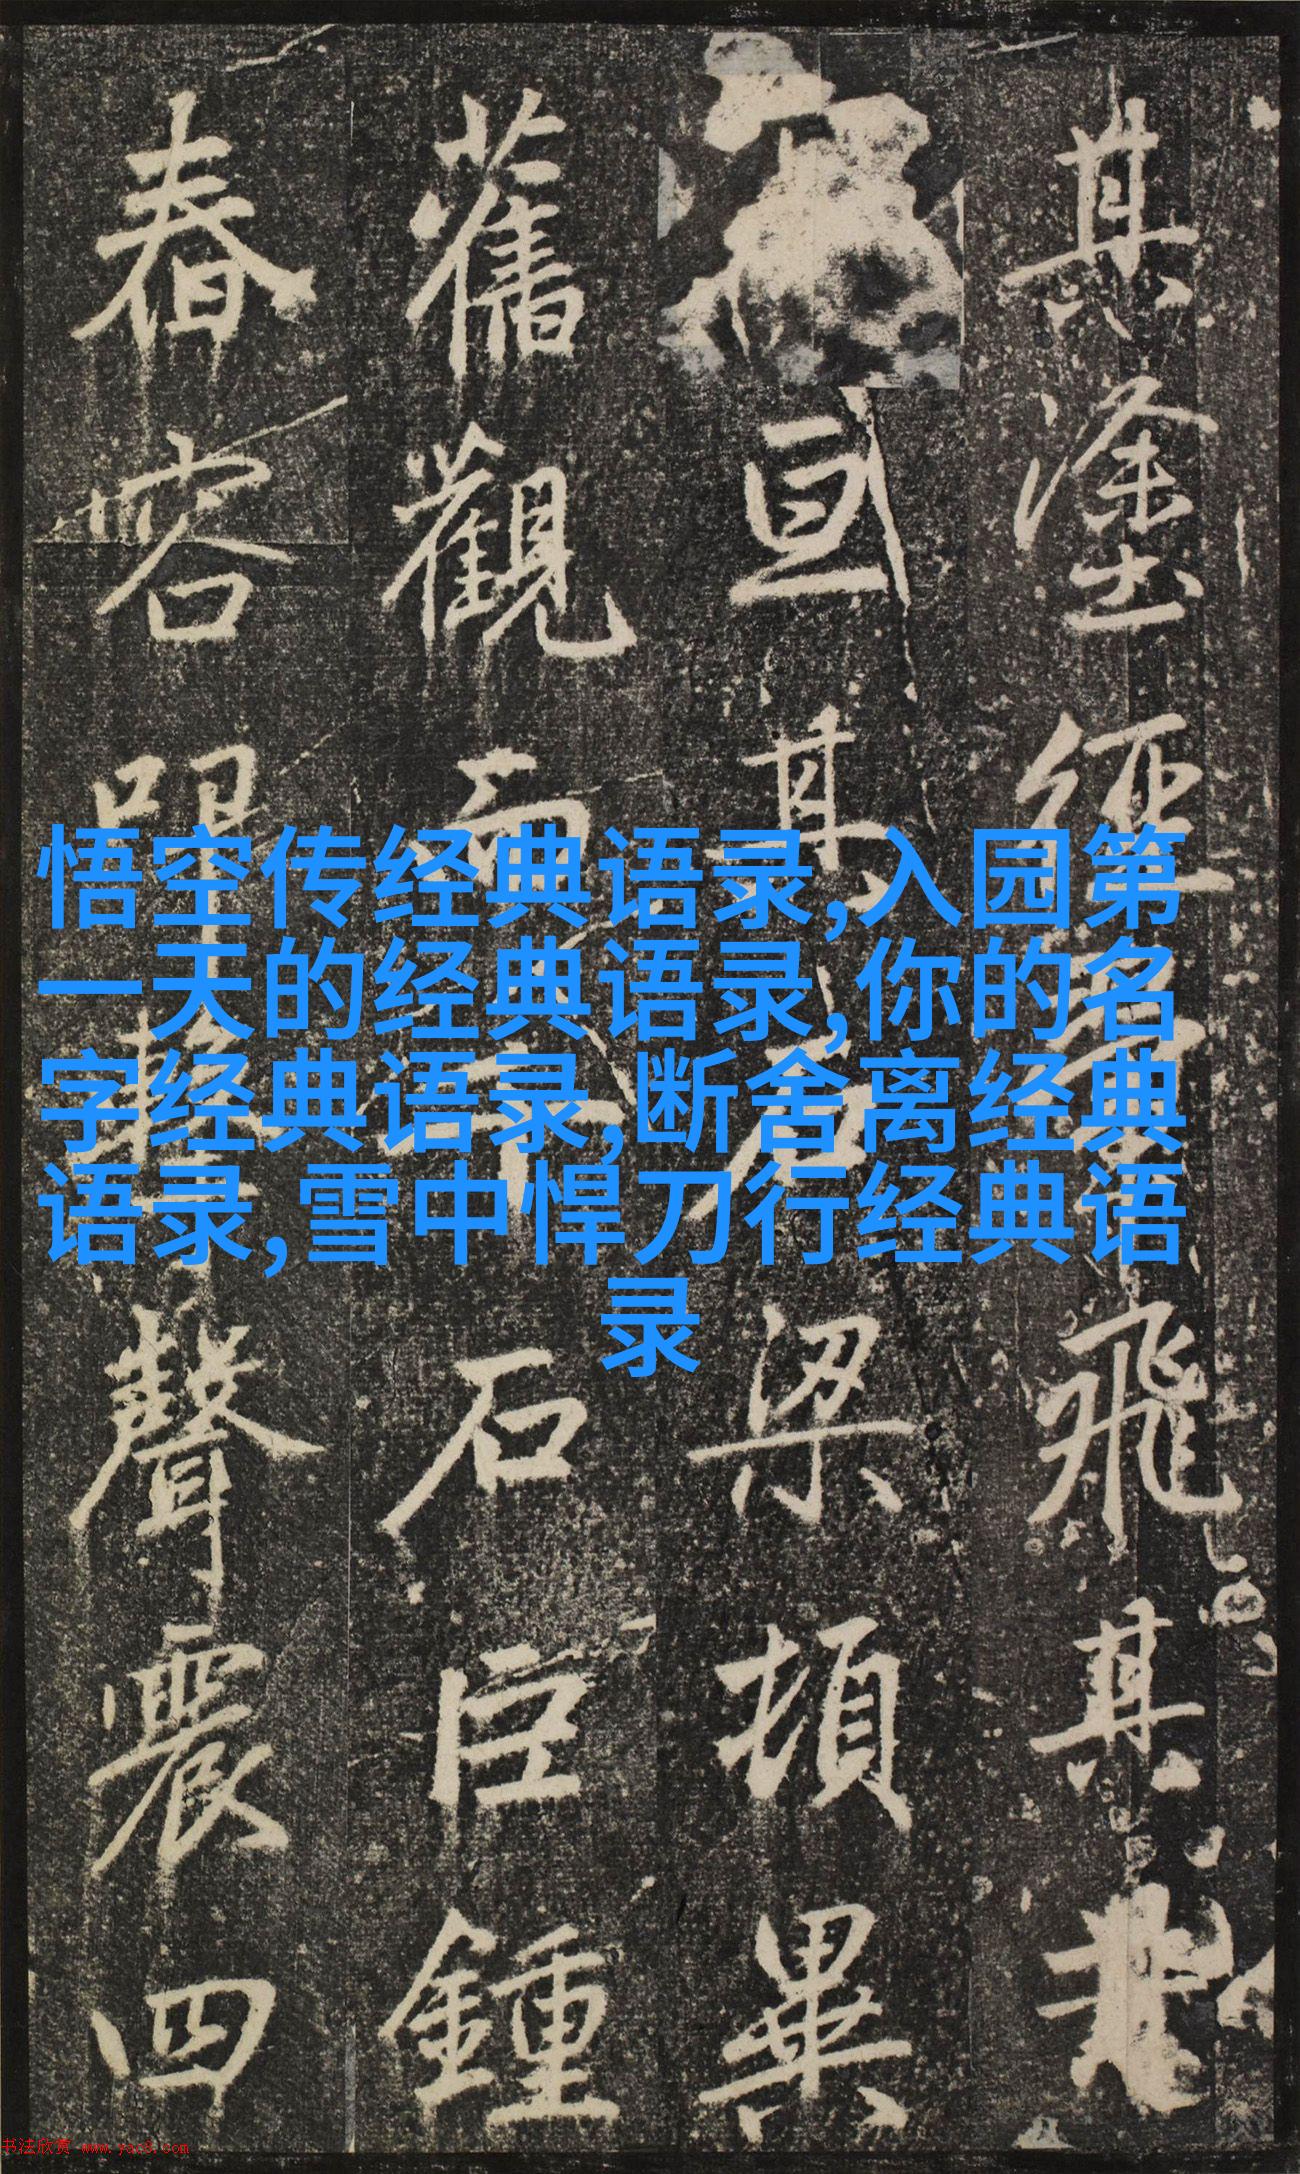 其塗經□□飛其□
亘其□石梁頓畢
舊觀而□□石巨鍾
舂容□□聲震四
悟空传经典语录,入园第
一天的经典语录,你的名
字经典语录,断舍离经典
语录,雪中悍刀行经典语
录
书法欣赏 www.yac8.com